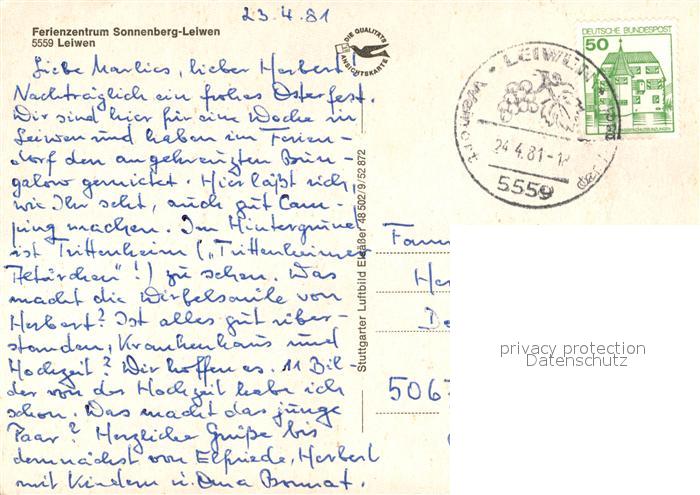 23.4.81
Ferienzentrum Sonnenberg-Leiwen
5559 Leiwen
DIE QUALITÄTS
ANSICHTSKARTE
Liebe Marlies, lieber Herbert!
Nachträglich ein frohes Osterfest.
Wir sind hier für eine Woche in
Leiwen und haben im Ferien-
dorf den angekreuzten Bun-
galow gemietet. Hier läßt sich,
wie Ihr seht, auch gut Cam-
ping machen. Im Hintergrund
ist Trittenheim ("Trittenheimer
Altärchen"!) zu sehen. Was
macht die Wirbelsäule von
Herbert? Ist alles gut über-
standen, Krankenhaus und
Hochzeit? Wir hoffen es. 11 Bil-
der von der Hochzeit habe ich
schon. Was macht das junge
Paar? Herzliche Grüße bis
demnächst von Elfriede, Herbert
mit Kindern u. Oma
Stuttgarter Luftbild Elsäßer 48 502/9/52 872
DEUTSCHE BUNDESPOST
50
LEIWEN
24.4.81-1
5559
Fam
He
De
506
privacy protection
Datenschutz